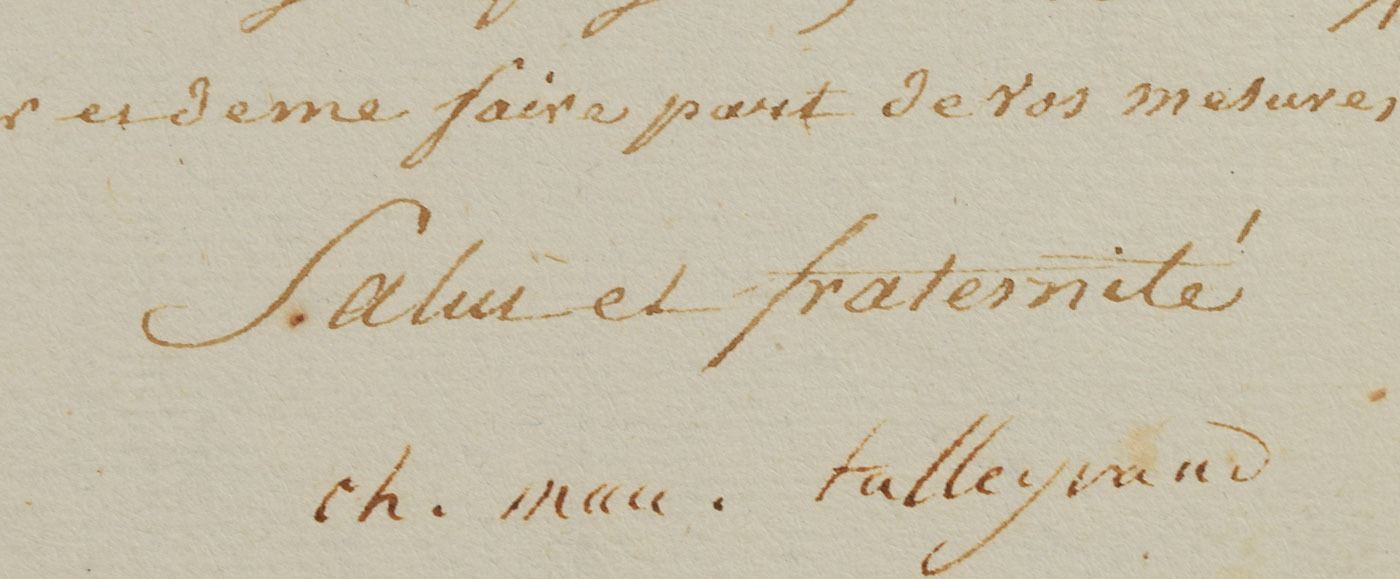 et de me faire part de vos mesures
Salut et fraternité
ch. mau. talleyrand